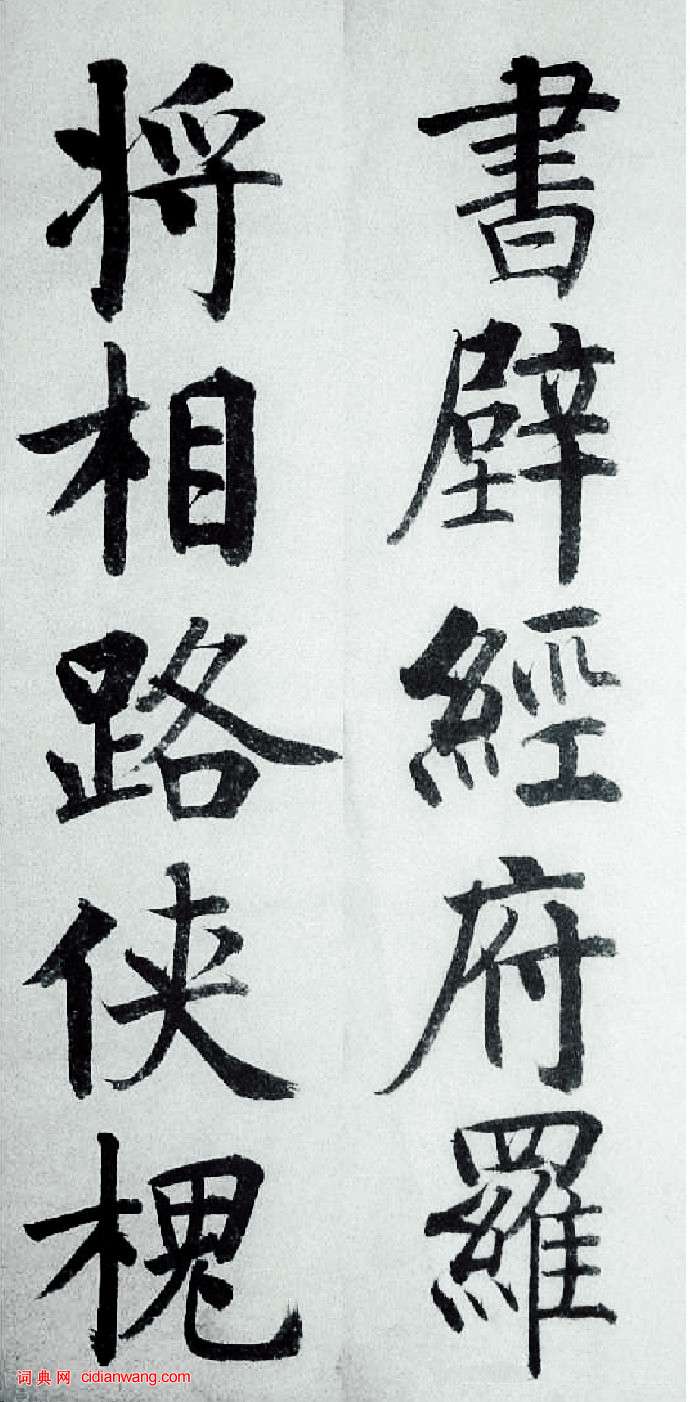 書壁經府羅
将相路侠槐
词典网 cidianwang.com